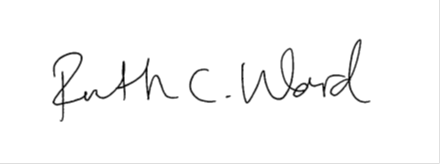 Ruth C. Ward